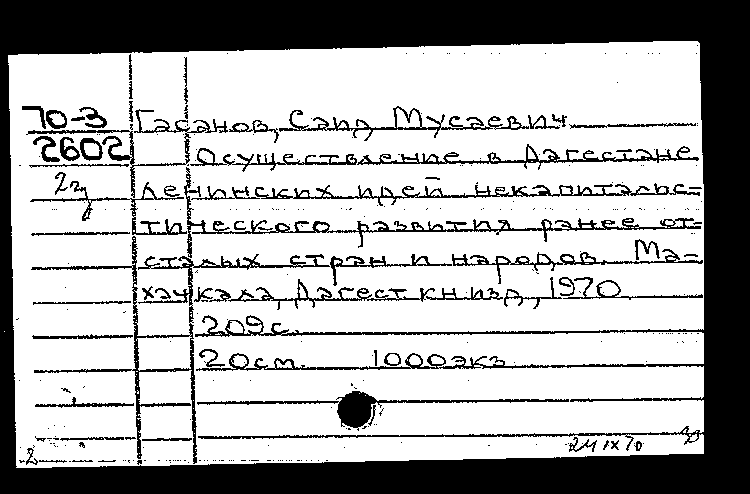 70-3 Гасанов, Саид Мусаевич
2602 Осуществление в Дагестане
ленинских идей некапиталис=
тического развития ранее от=
сталых стран и народов. Ма=
хачкала, Дагест кн изд, 1970
209с.
20см. 1000экз
2